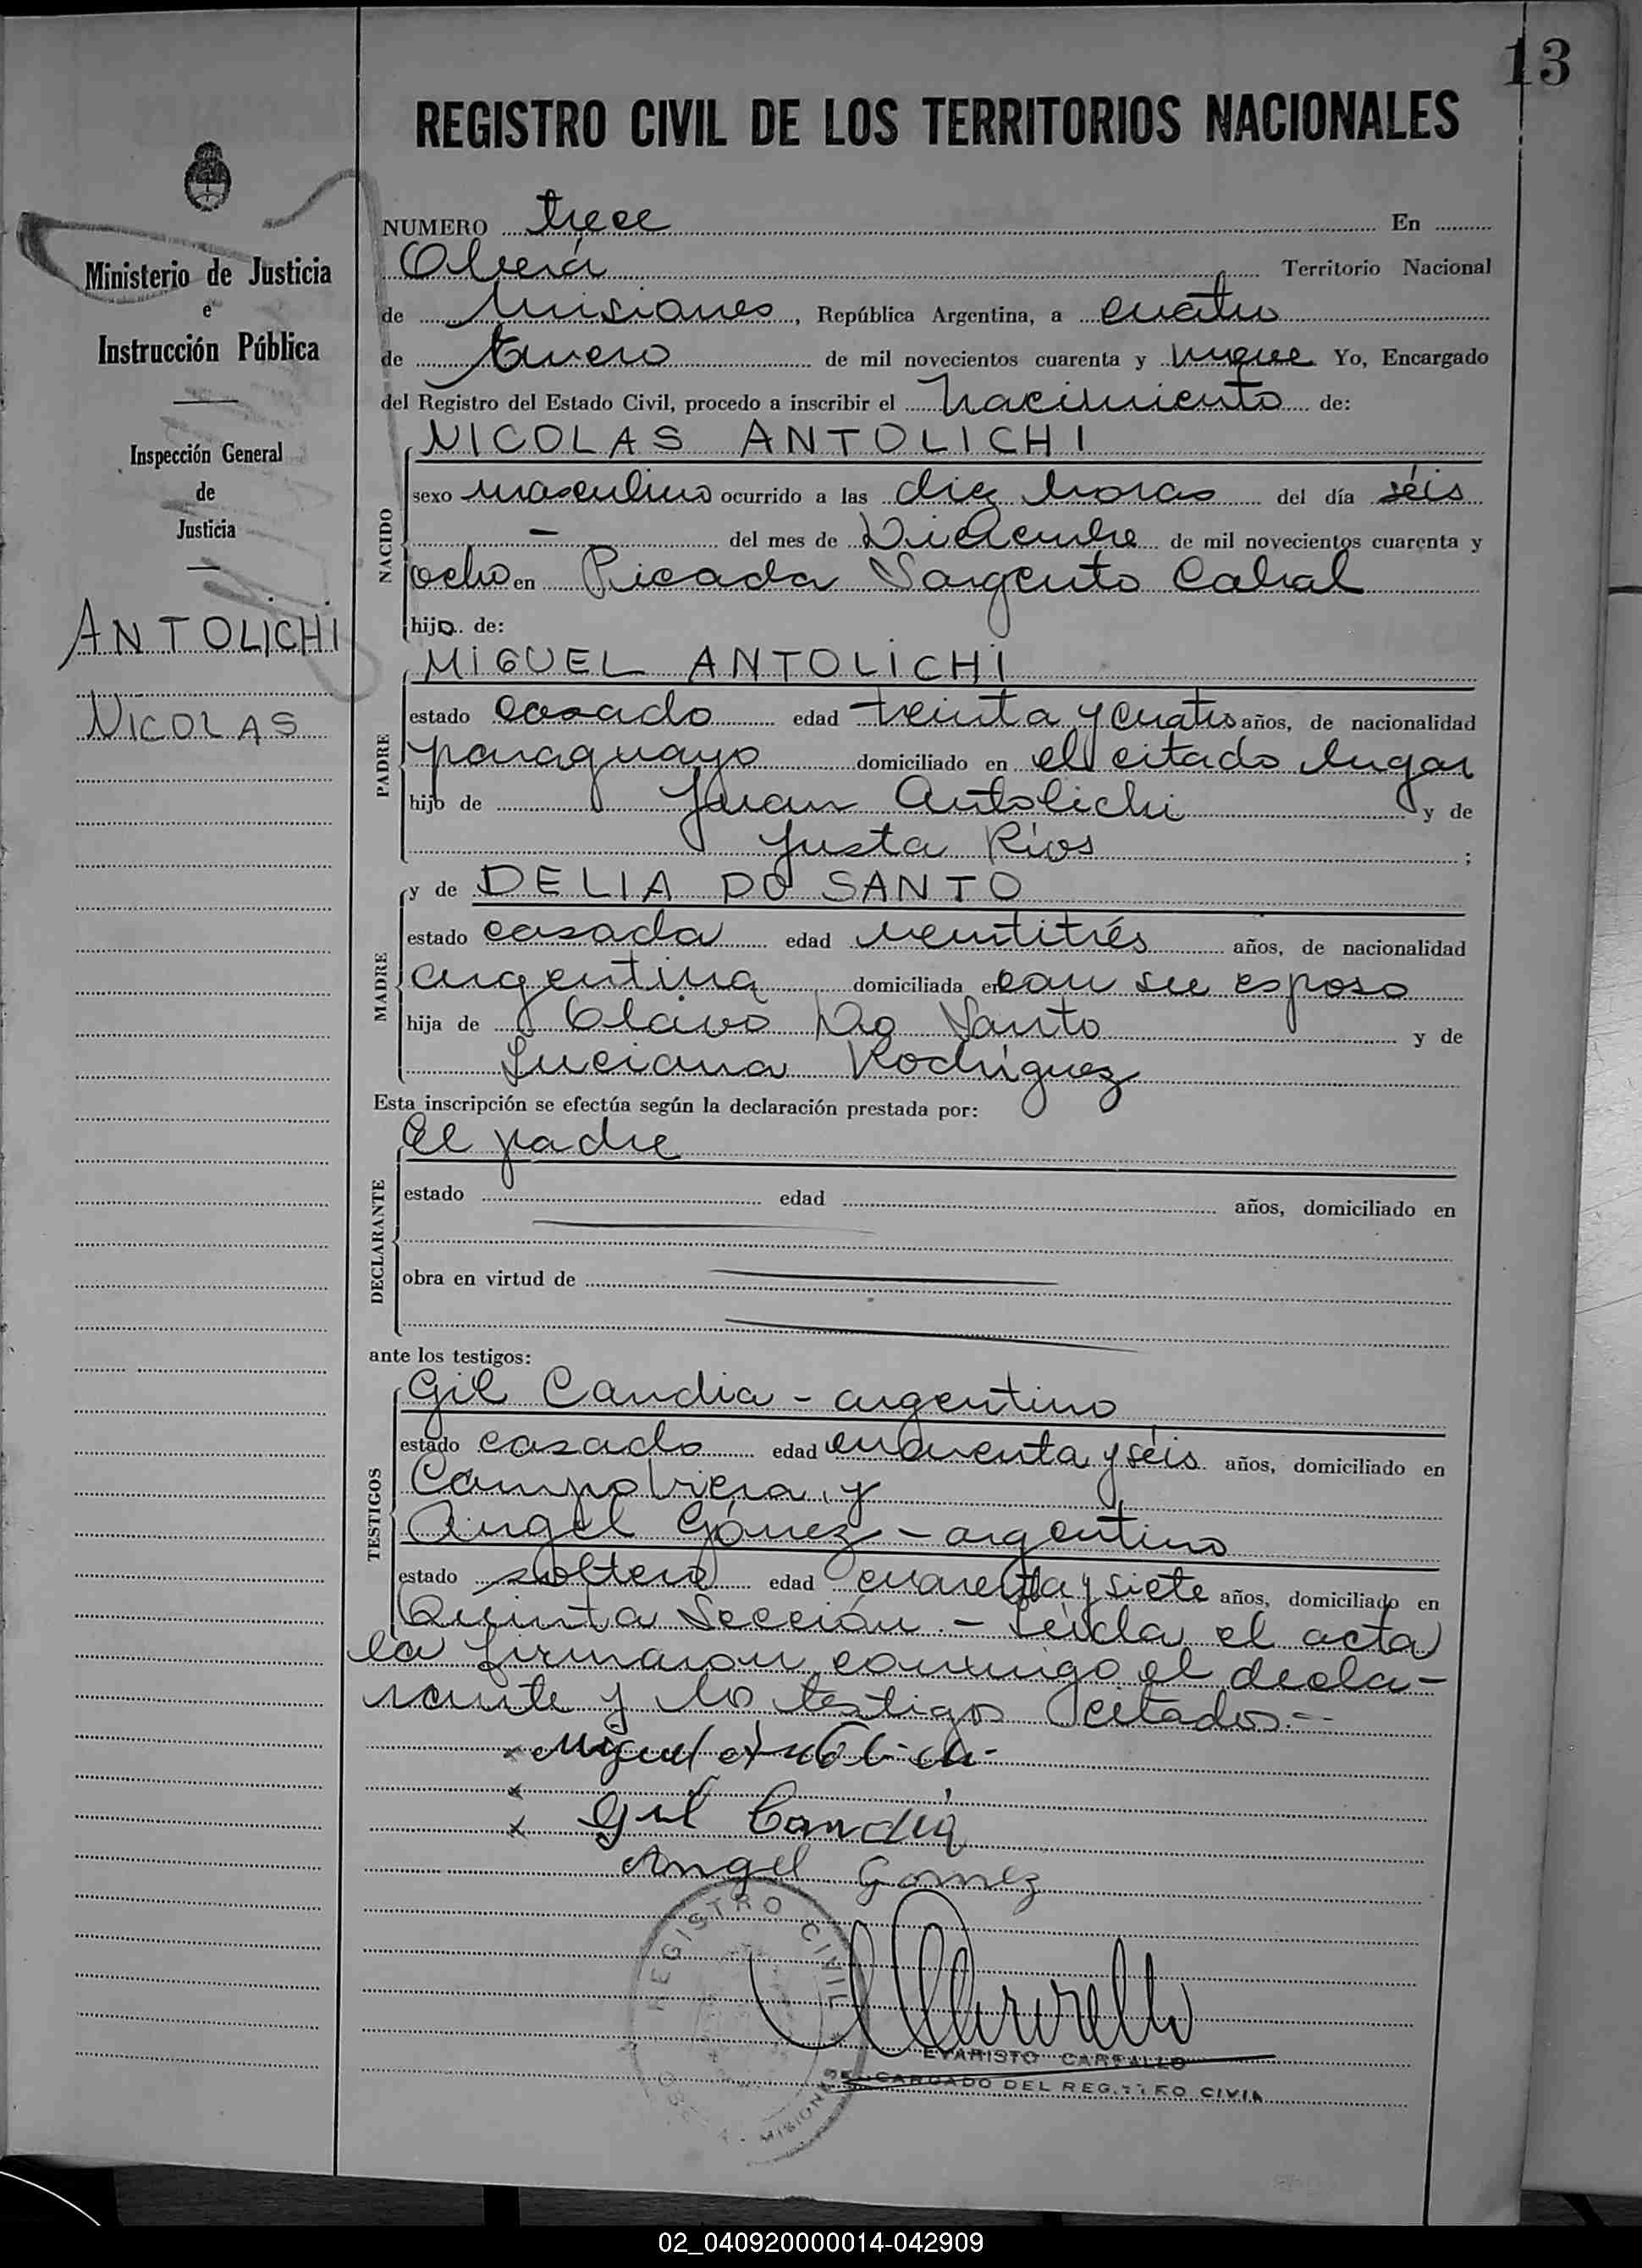 13
REGISTRO CIVIL DE LOS TERRITORIOS NACIONALES
Ministerio de Justicia
e
Instrucción Pública
Inspección General
de
Justicia
ANTOLICHI
NICOLAS
NUMERO trece En
Oberá Territorio Nacional
de Misiones, República Argentina, a cuatro
de Enero de mil novecientos cuarenta y nueve Yo, Encargado
del Registro del Estado Civil, procedo a inscribir el nacimiento de:
NICOLAS ANTOLICHI
NACIDO
sexo masculino ocurrido a las diez horas del día séis
- del mes de Diciembre de mil novecientos cuarenta y
ocho en Picada Sargento Cabral
hijo de:
MIGUEL ANTOLICHI
PADRE
estado casado edad treinta y cuatro años, de nacionalidad
paraguayo domiciliado en el citado lugar
hijo de Juan Antolichi y de
Justa Ríos ;
y de DELIA DO SANTO
MADRE
estado casada edad ventitrés años, de nacionalidad
argentina domiciliada en con su esposo
hija de Olavo Do Santo y de
Luciana Rodríguez
Esta inscripción se efectúa según la declaración prestada por:
El padre
DECLARANTE
estado edad años, domiciliado en
obra en virtud de
ante los testigos:
Gil Candia - argentino
TESTIGOS
estado casado edad cuarenta y séis años, domiciliado en
Campo Viera y
Angel Gómez - argentino
estado soltero edad cuarenta y siete años, domiciliado en
Quinta Sección. - Leída el acta
la firmaron conmigo el decla-
rante y lo testigos citados.-
x Miguel Antolichi-
x
x Gil Candia
Angel Gomez
REGISTRO CIVIL
OBERA - MISIONES
EVARISTO CARVALLO
ENCARGADO DEL REGISTRO CIVIL
02_040920000014-042909